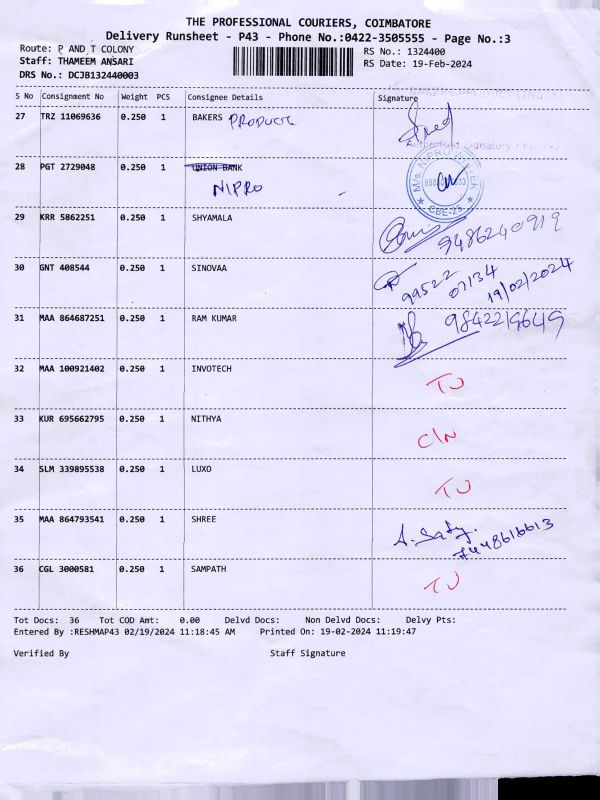 THE PROFESSIONAL COURIERS, COIMBATORE
Delivery Runsheet - P43 - Phone No.:0422-3505555 - Page No.:3
Route: P AND T COLONY RS No.: 1324400
Staff: THAMEEM ANSARI RS Date: 19-Feb-2024
DRS No.: DCJB132440003
S No Consignment No Weight PCS Consignee Details Signature
27 TRZ 11069636 0.250 1 BAKERS PRODUCTS
Authorised Signatory /
28 PGT 2729048 0.250 1 UNION BANK
NIPRO
CBE-25
29 KRR 5862251 0.250 1 SHYAMALA 9486240919
30 GNT 408544 0.250 1 SINOVAA 99522 07134
19/02/2024
31 MAA 864687251 0.250 1 RAM KUMAR 9842219649
32 MAA 100921402 0.250 1 INVOTECH TU
33 KUR 695662795 0.250 1 NITHYA C/N
34 SLM 339895538 0.250 1 LUXO TU
35 MAA 864793541 0.250 1 SHREE A. Saty.
7448616613
36 CGL 3000581 0.250 1 SAMPATH TU
Tot Docs: 36 Tot COD Amt: 0.00 Delvd Docs: Non Delvd Docs: Delvy Pts:
Entered By :RESHMAP43 02/19/2024 11:18:45 AM Printed On: 19-02-2024 11:19:47
Verified By Staff Signature